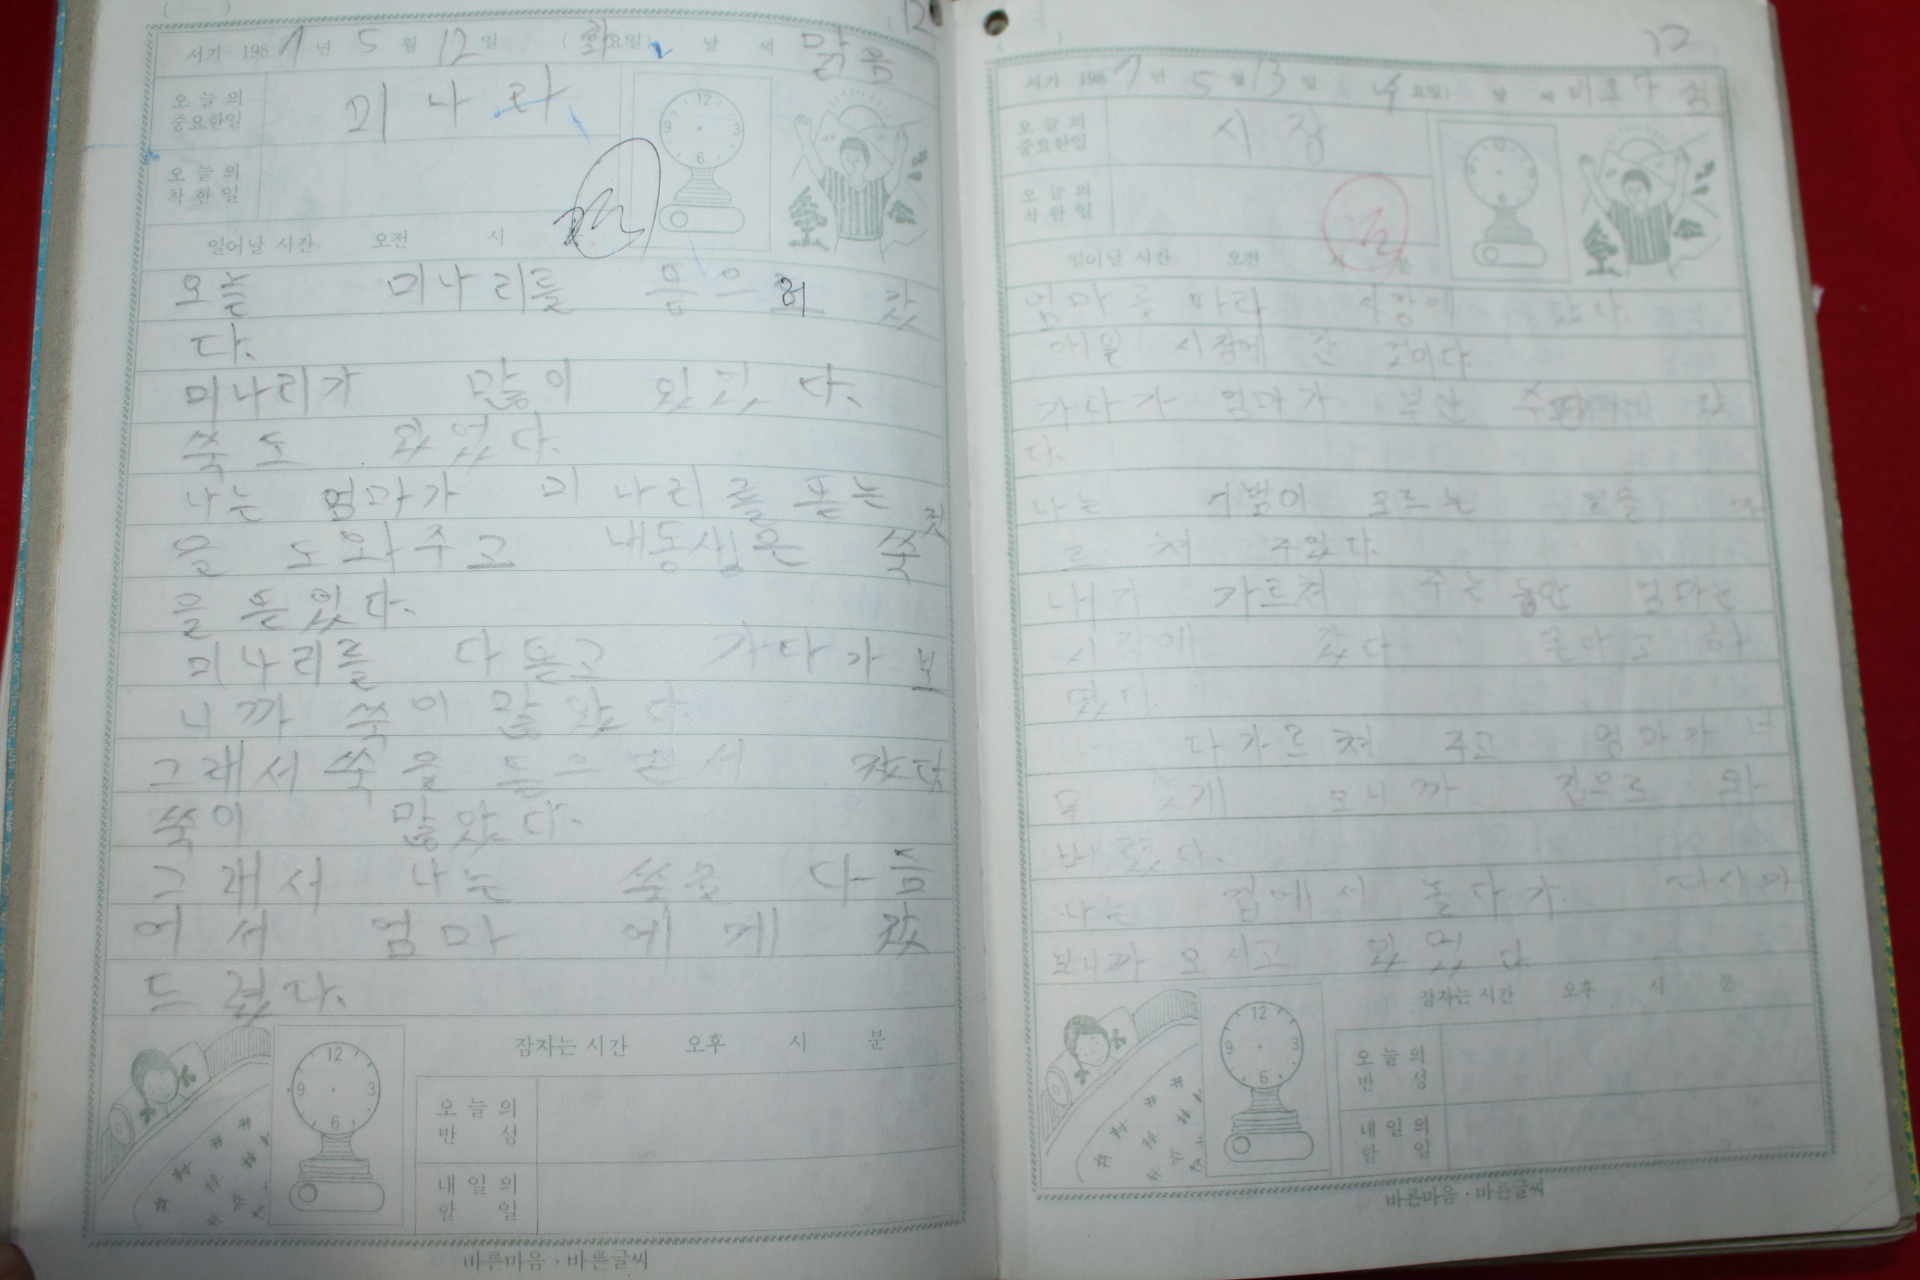 12
서기 1987년 5월 12일 (화요일) 날씨 맑음
오늘의 중요한일 미나리
오늘의 착한일
12
3
6
9
일어날 시간 오전 시
오늘 미나리를 뜯으러 갔
다.
미나리가 많이 있었다.
쑥도 있었다.
나는 엄마가 미나리를 뜯는 것
을 도와주고 내동생은 쑥
을 뜯었다.
미나리를 다 뜯고 가다가 보
니까 쑥이 많았다.
그래서 쑥을 뜯으면서 갔다
쑥이 많았다.
그래서 나는 쑥을 다듬
어서 엄마에게 갔
드렸다.
잠자는 시간 오후 시 분
12
3
6
9
오늘의 반성
내일의 할일
바른마음·바른글씨
12
서기 1987년 5월 13일 수요일) 날씨
오늘의 중요한일 시장
오늘의 착한일
일어날 시간 오전 시 분
엄마를 따라 시장에 갔다.
시장에 간 것이다.
가다가 엄마가 부산
다.
나는 모르는 것을 가
르쳐 주었다.
내가 가르쳐 주는 동안 엄마는
시장에 갔다 온다고 하
였다.
다가르쳐 주고 엄마가 너
무 늦게 오니까 집으로 와
버렸다.
나는 집에서 놀다가 다시가
보니까 오시고 있었다.
잠자는 시간 오후 시 분
12
3
6
9
오늘의 반성
내일의 할일
바른마음·바른글씨